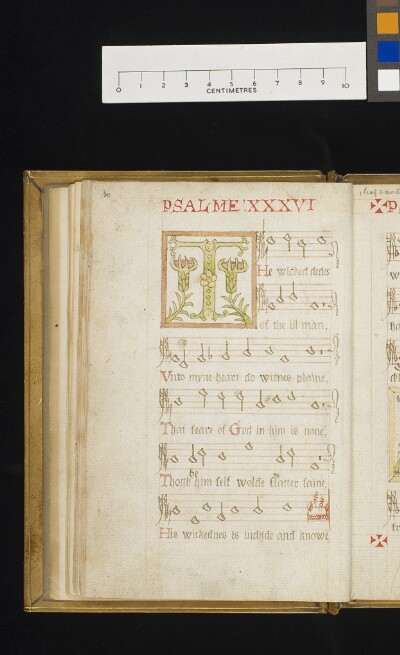 0 1 2 3 4 5 6 7 8 9 10
CENTIMETRES
30
PSALME XXXVI
THe wicked dedes
of the ill man,
Vnto myne heart do witnes plaine,
That feare of God in him is none,
Thogh he him self wolde flatter faine,
His wickednes is iudgde and knowe